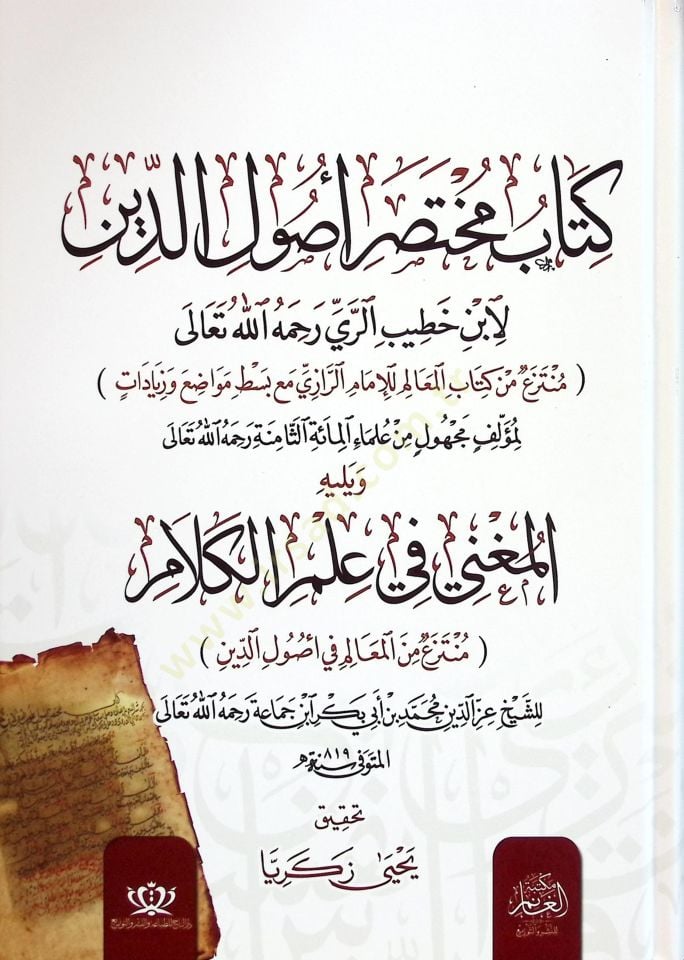 كِتَابُ مُخْتَصَرِ أُصُولِ الدِّينِ
لِابْنِ خَطِيبِ الرَّيِّ رَحِمَهُ اللهُ تَعَالَى
( مُنْتَزَعٌ مِنْ كِتَابِ المَعَالِمِ لِلإِمَامِ الرَّازِيِّ مَعَ بَسْطِ مَوَاضِعَ وَزِيَادَاتٍ )
لِمُؤَلِّفٍ مَجْهُولٍ مِنْ عُلَمَاءِ المِائَةِ الثَّامِنَةِ رَحِمَهُ اللهُ تَعَالَى
وَيَلِيهِ
المُغْنِي فِي عِلْمِ الكَلَامِ
( مُنْتَزَعٌ مِنَ المَعَالِمِ فِي أُصُولِ الدِّينِ )
لِلشَّيْخِ عِزِّ الدِّينِ مُحَمَّدِ بْنِ أَبِي بَكْرِ ابْنِ جَمَاعَةَ رَحِمَهُ اللهُ تَعَالَى
المتوفى سنة ٨١٩هـ
تحقيق
يَحْيَى زَكَرِيَّا
مكتبة
الغانم
للنشر والتوزيع
دار التاج للطباعة والنشر والتوزيع